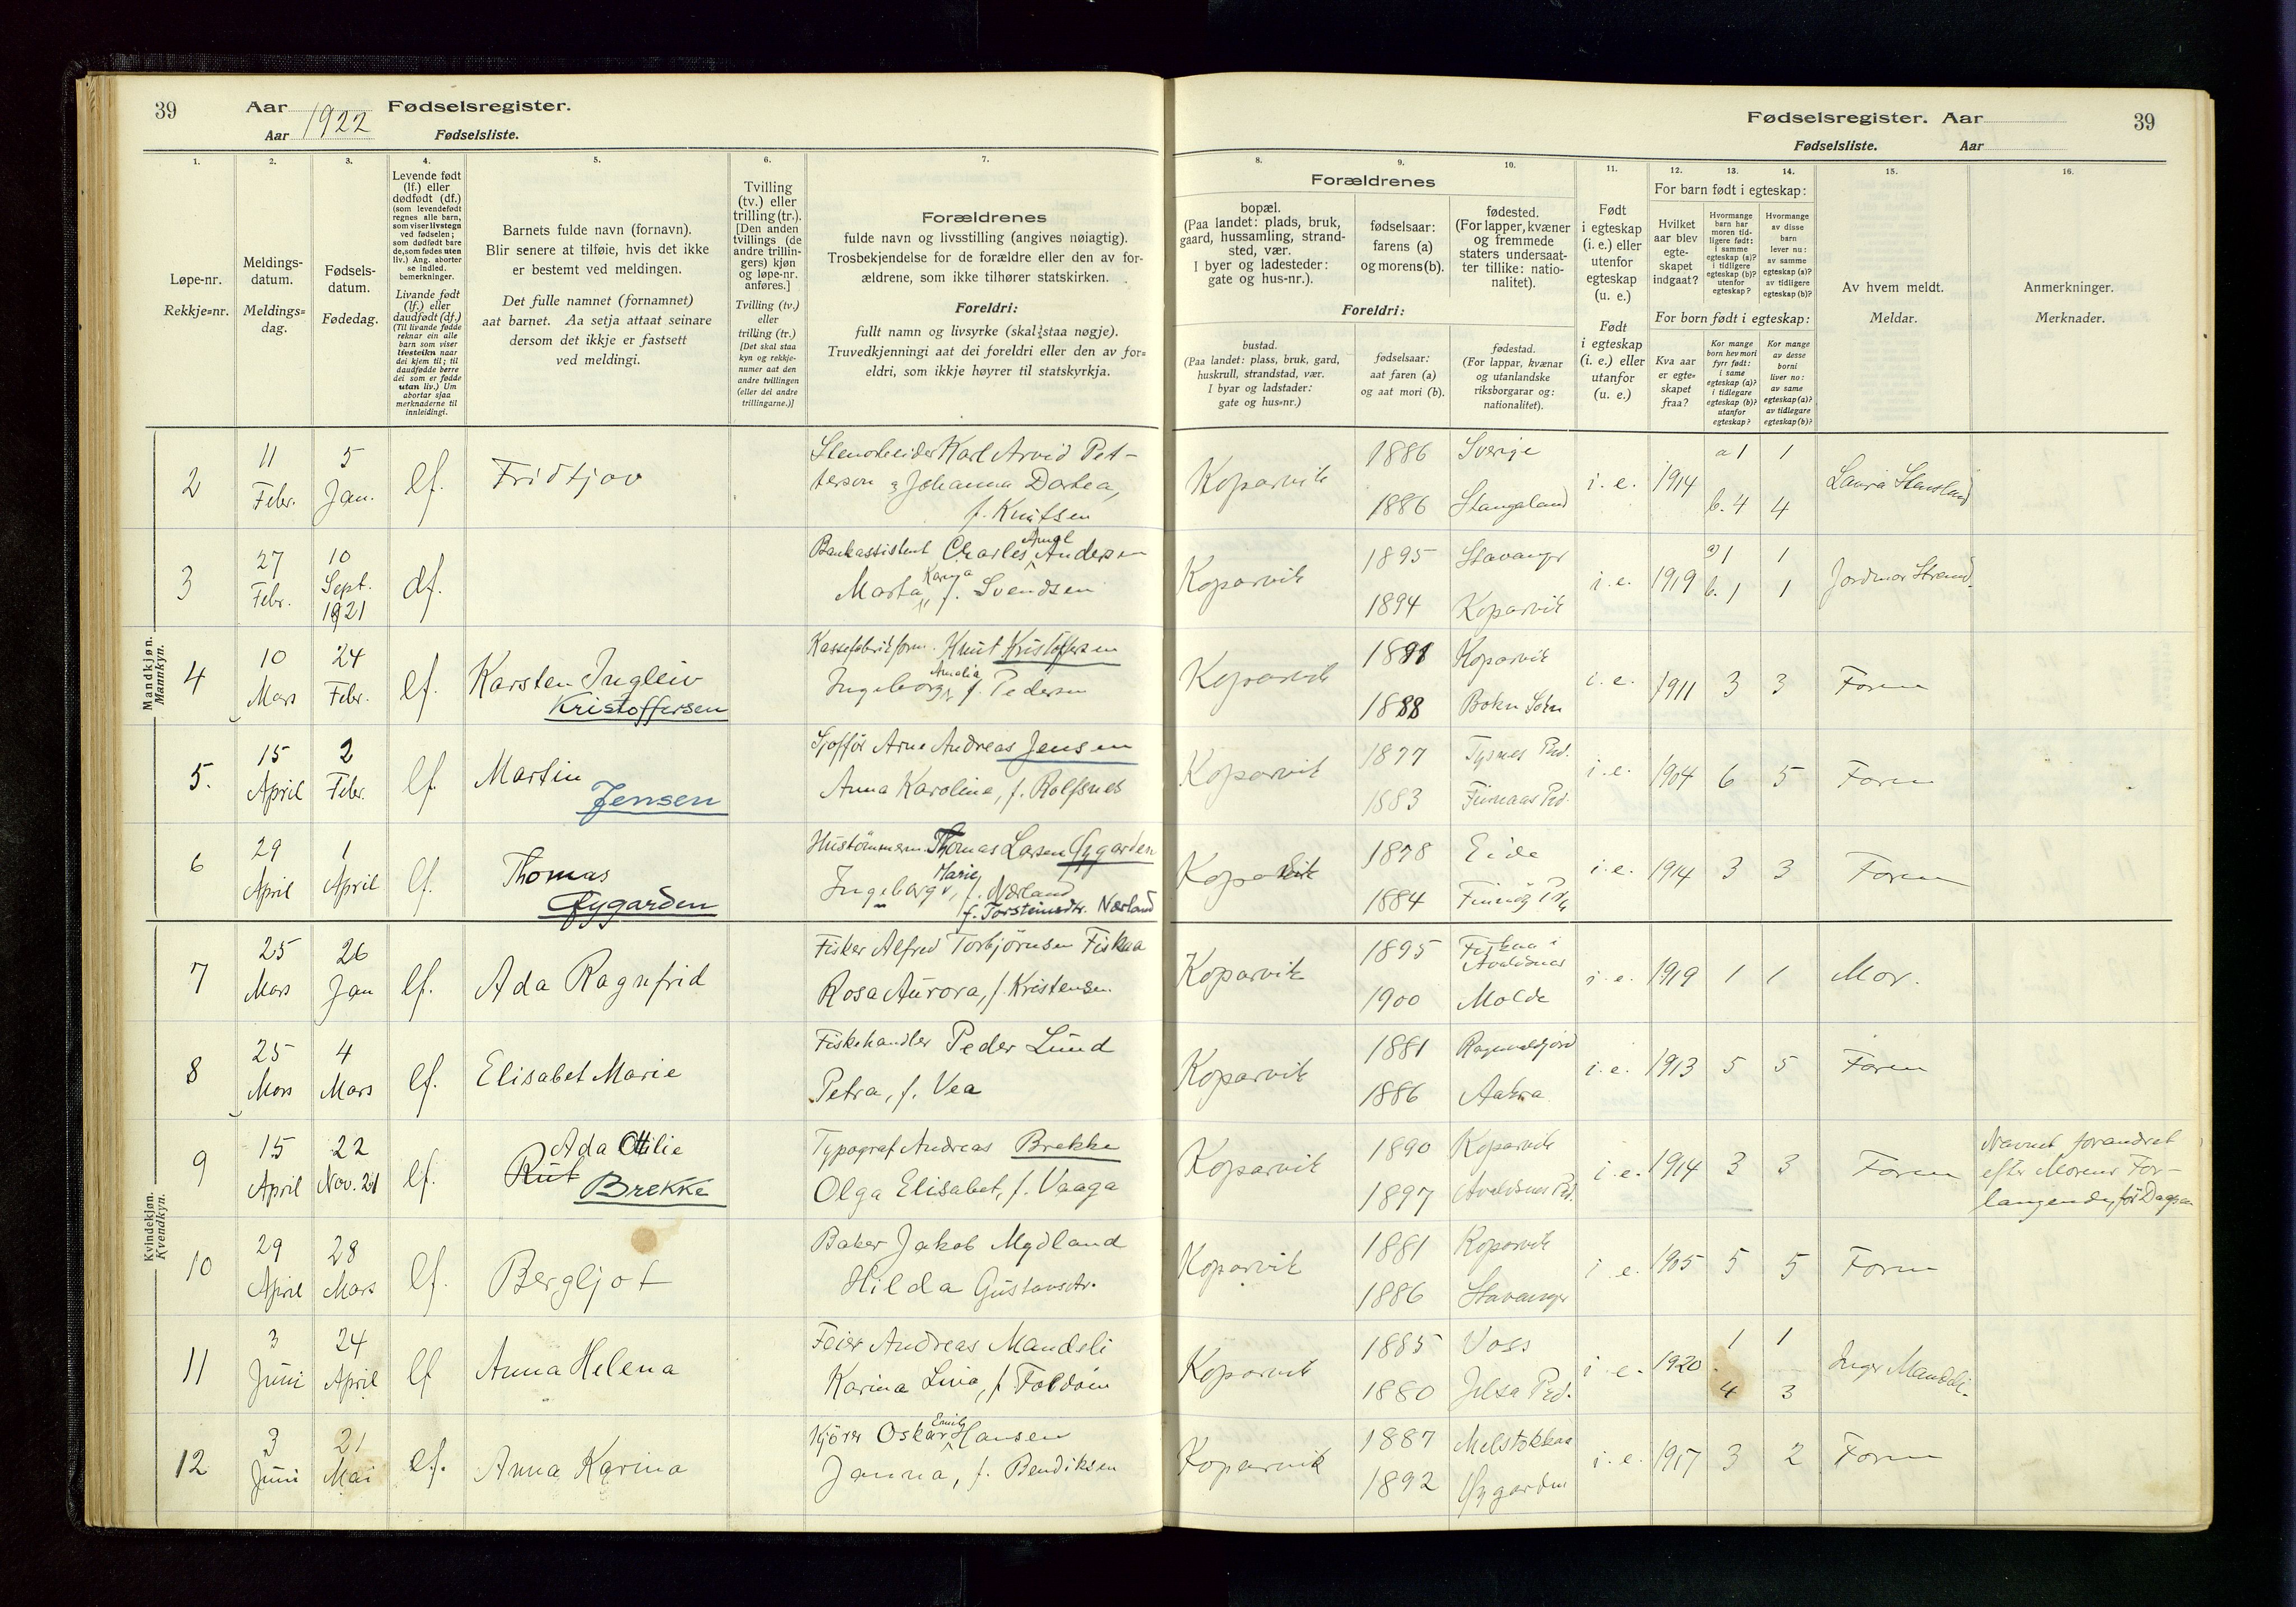 39 Aar 1922 Fødselsregister.
Aar Fødselsliste.
Fødselsregister. Aar 39
Fødselsliste. Aar
1. 2. 3. 4. 5. 6. 7.
Løpe-nr.
Rekkje=nr.
Meldings-
datum.
Meldings=
dag.
Fødsels-
datum.
Fødedag.
Levende født
(lf.) eller
dødfødt (df.)
(som levendefødt
regnes alle barn,
som viser livstegn
ved fødselen;
som dødfødt bare
de, som fødes uten
liv.) Ang. aborter
se indled.
bemerkninger.
Livande født
(lf.) eller
daudfødt (df.)
(Til livande fødde
reknar ein alle
barn som viser
livsteikn naar
dei kjem til; til
daudfødde berre
dei som er fødde
utan liv.) Um
abortar sjaa
merknaderne til
innleidingi.
Barnets fulde navn (fornavn).
Blir senere at tilføie, hvis det ikke
er bestemt ved meldingen.
Det fulle namnet (fornamnet)
aat barnet. Aa setja attaat seinare
dersom det ikkje er fastsett
ved meldingi.
Tvilling
(tv.) eller
trilling (tr.).
[Den anden
tvillings (de
andre trillin-
gers) kjøn
og løpe-nr.
anføres.]
Tvilling (tv.)
eller
trilling (tr.)
[Det skal staa
kyn og rekkje-
numer aat den
andre tvillingen
(eller dei andre
trillingarne.)]
Forældrenes
fulde navn og livsstilling (angives nøiagtig).
Trosbekjendelse for de forældre eller den av for-
ældrene, som ikke tilhører statskirken.
Foreldri:
fullt namn og livsyrke (skal staa nøgje).
Truvedkjenningi aat dei foreldri eller den av for=
eldri, som ikkje høyrer til statskyrkja.
8. 9. 10. 11. 12. 13. 14. 15. 16.
Forældrenes
bopæl.
(Paa landet: plads, bruk,
gaard, hussamling, strand-
sted, vær.
I byer og ladesteder:
gate og hus-nr.).
fødselsaar:
farens (a)
og morens (b).
fødested.
(For lapper, kvæner
og fremmede
staters undersaat-
ter tillike: natio-
nalitet).
Foreldri:
bustad.
(Paa landet: plass, bruk, gard,
huskrull, strandstad, vær.
I byar og ladstader:
gate og hus=nr.)
fødselsaar:
aat faren (a)
og aat mori (b).
fødestad.
(For lappar, kvænar
og utanlandske
riksborgarar og:
nationalitet).
Født
i egteskap
(i. e.) eller
utenfor
egteskap
(u. e.)
Født
i egteskap
(i. e.) eller
utanfor
(u. e.)
For barn født i egteskap:
Hvilket
aar blev
egte-
skapet
indgaat?
Hvormange
barn har
moren tid-
ligere født:
i samme
egteskap (a)?
i tidligere
egteskap (b)?
utenfor
egteskap?
Hvormange
av disse
barn
lever nu:
av samme
egteskap (a)?
av tidligere
egteskap (b)?
For born født i egteskap:
Kva aar
er egte=
skapet
fraa?
Kor mange
born hev mori
fyrr født:
i same
egteskap (a)?
i tidlegare
egteskap (b)?
utanfor
egteskap?
Kor mange
av desse
borni
liver no:
av same
egteskap (a)?
av tidlegare
egteskap (b)?
Av hvem meldt.
Meldar.
Anmerkninger.
Merknader.
Mandkjøn.
Mannkyn.
2 11 Febr. 5 Jan. lf. Fridtjov
Karl Arvid Pet-
terson & Johanna Dortea,
f. Knutsen
Koparvik 1886 Sverige i. e. 1914 a 1 1
1886 Stangeland b. 4 4
Laura Stensland
3 27 Febr. 10 Sept. 1921 df.
Bankassistent Charles Amal Andersen
Marta Karya f. Svendsen
Koparvik 1895 Stavanger i. e. 1919 a) 1 1
1894 Koparvik b. 1 1
4 10 Mars 24 Febr. lf. Karsten Ingleiv
Kristoffersen
Knut Kristoffersen
Ingeborg Amalia f. Pedersen
Koparvik 1881 Koparvik i. e. 1911 3 3 Faren
1888 Bokn Sokn
5. 15 April 2 Febr. lf. Martin
Jensen
Sjofför Arne Andreas Jensen
Anna Karoline, f. Rolfsnes
Koparvik 1877 Tysnes Prd. i. e. 1904 6 5 Faren
1883 Finnaas Prd.
6 29 April 1 April lf. Thomas
Øygarden
Hustømmerm. Thomas Larsen Øygarden
Ingeborg Marie, f. Nærland
f. Torsteinsdtr. Nærland
Koparvik 1878 Eide i. e. 1914 3 3 Faren
1884
Kvindekjøn.
Kvendkyn.
7 25 Mars 26 Jan lf. Ada Ragnfrid
Fisker Alfred Torbjørnsen Fiskaa
Rosa Aurora, f. Kristensen
Koparvik 1895 Fiskaa i Avaldsnes i. e. 1919 1 1 Mor.
1900 Molde
8 25 Mars 4 Mars lf. Elisabet Marie
Fiskehandler Peder Lund
Petra, f. Vea
Koparvik 1881 i. e. 1913 5 5 Faren
1886 Aakra
9 15 April 22 Nov. 21 lf. Ada Ottilie
Rut
Brekke
Typograf Andreas Brekke
Olga Elisabet, f. Vaaga
Koparvik 1890 Koparvik i. e. 1914 3 3 Faren
1897 Avaldsnes Prd.
Navnet forandret
efter Morens For-
langende, før Daapen
10 29 April 28 Mars lf. Bergljot
Baker Jakob Mydland
Hilda Gustavsdtr.
Koparvik 1881 Koparvik i e. 1905 5 5 Faren
1886 Stavanger
11 3 Juni 24 April lf Anna Helena
Feier Andreas Mandeli
Karina Lina, f. Foldøin
Koparvik 1885 Voss i e. 1920 1 1
1880 Jelsa Prd. 4 3
Inger Mandeli.
12 3 Juni 21 Mai lf. Anna Karina
Kjörer Oskar Emil Hansen
Janna, f. Bendiksen
Koparvik 1887 Melstokkaa i. e. 1917 3 2 Faren
1892 Øygarden